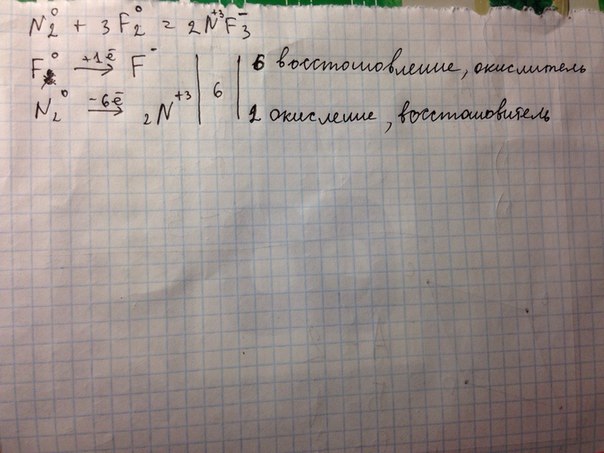 N₂⁰ + 3F₂⁰ = 2N⁺³F₃⁻
F⁰ +1ē → F⁻ | | 6 восстоновление, окислитель
N₂⁰ -6ē → 2N⁺³ | 6 | 1 окисление, восстоновитель